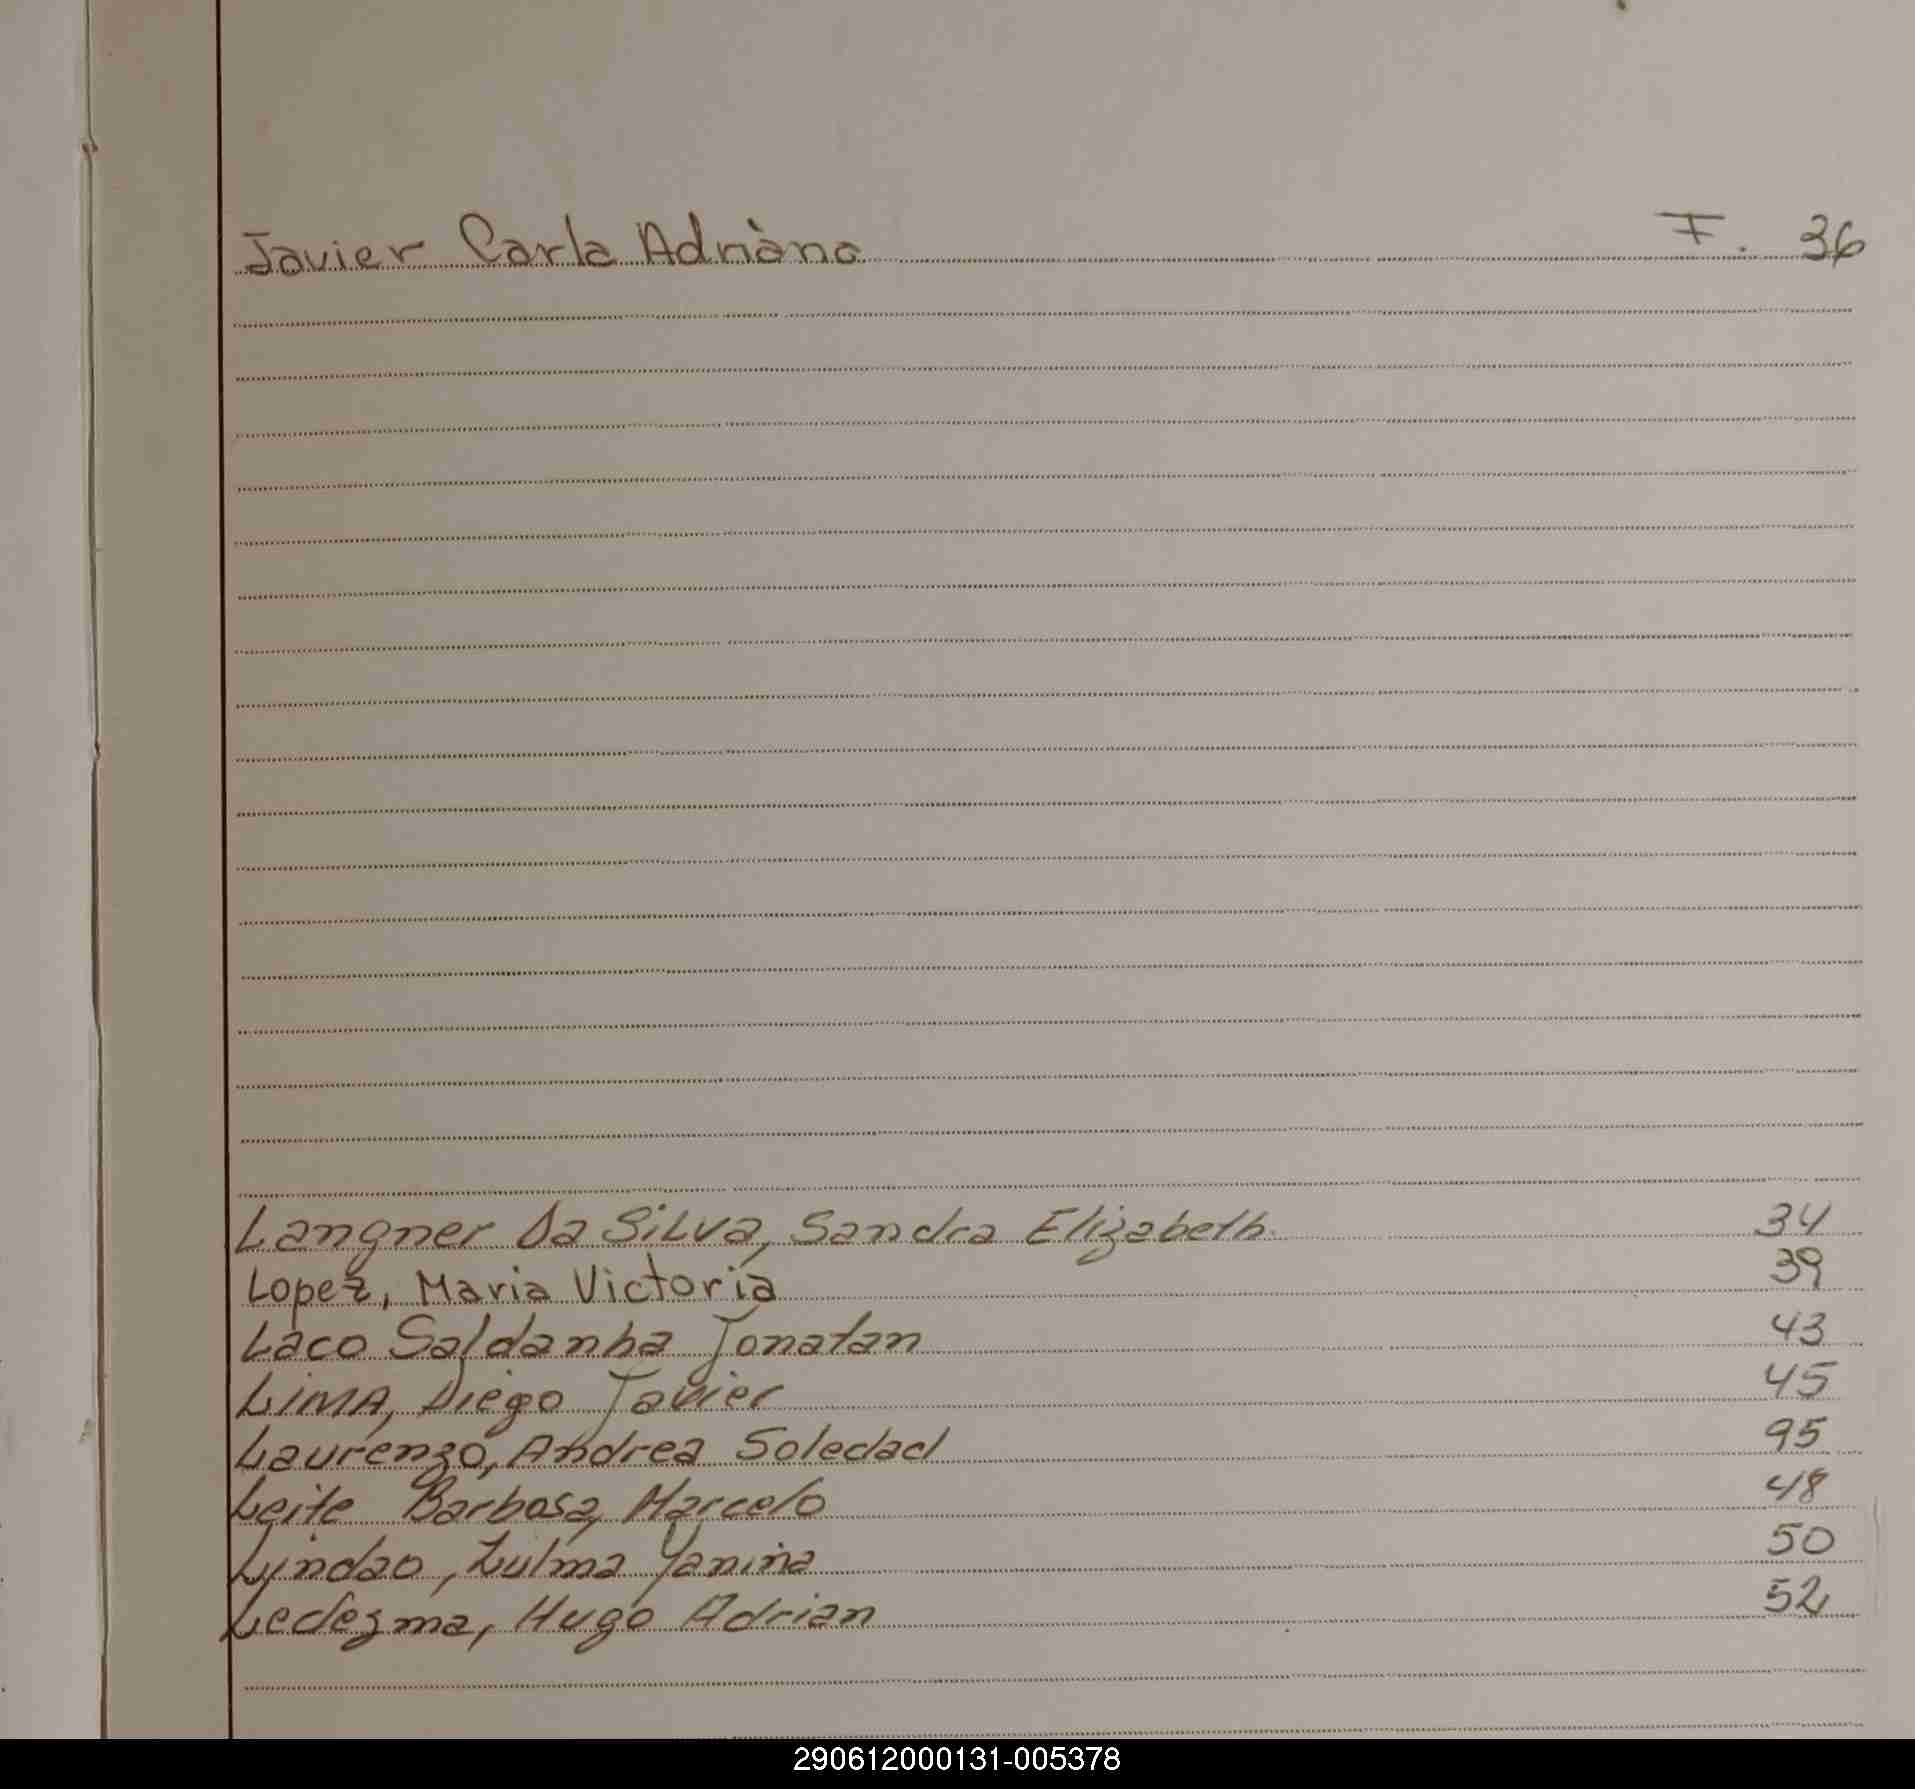 Javier Carla Adriana F. 36
Langner Da SiLVa, Sandra Elizabeth. 34
Lopez, Maria Victoria 39
Laco Saldanha Jonatan 43
LiMA, Diego Javier 45
Laurenzo, Andrea Soledad 95
Leite Barbosa, Marcelo 48
Lyndao, Zulma Yanina 50
Ledezma, Hugo Adrian 52
290612000131-005378